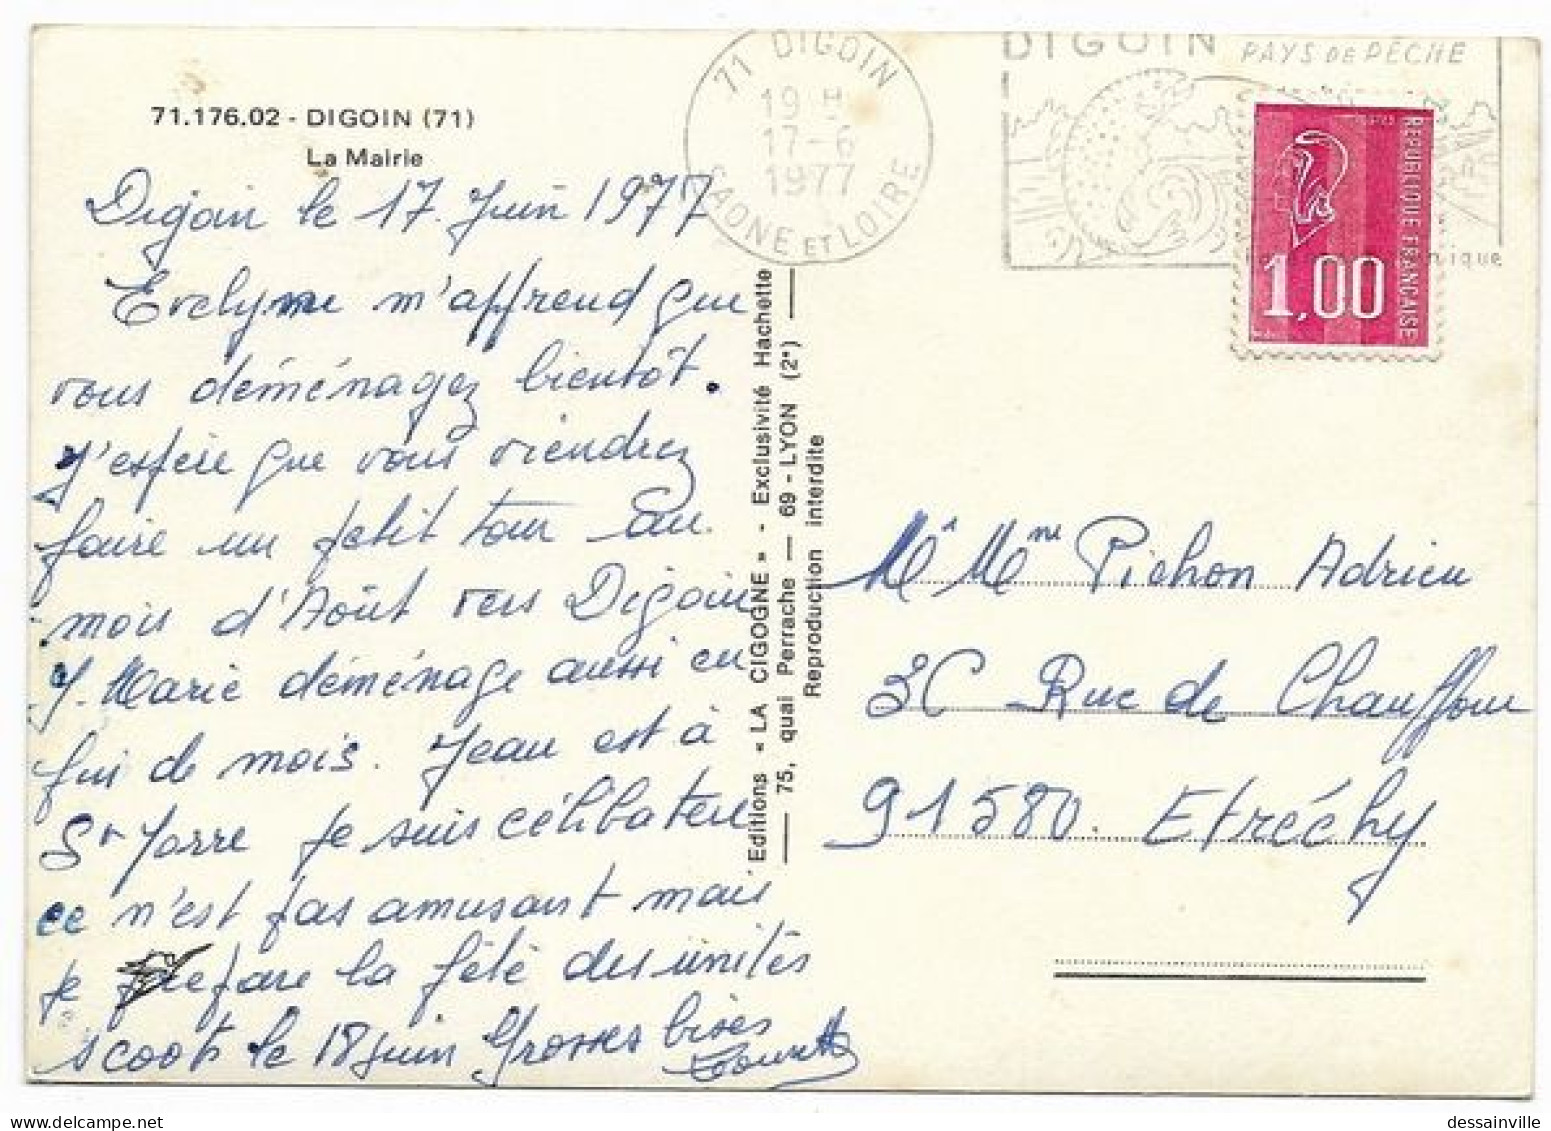 71.176.02 - DIGOIN (71)
La Mairie
Digoin le 17 Juin 1977
Evelyne m'apprend que
vous déménagez bientôt.
J'espère que vous viendrez
faire un petit tour au
mois d'Août vers Digoin
J. Marie déménage aussi en
fin de mois. Jean est à
St Yorre je suis célibataire
ce n'est pas amusant mais
je prépare la fête des unités
scoot le 18 juin Grosses bises
Editions « LA CIGOGNE » - Exclusivité Hachette
75, quai Perrache — 69 - LYON (2e)
Reproduction interdite
71 DIGOIN
19 H
17-6
1977
SAONE ET LOIRE
DIGOIN
PAYS DE PÊCHE
REPUBLIQUE FRANCAISE
1,00
Mr Mme Pichon Adrien
3C Rue de Chauffour
91580. Etréchy
dessainville